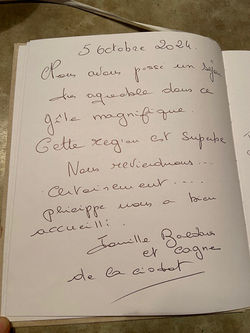 5 Octobre 2024.
Nous avons passe un séjour
très agréable dans ce
gîte magnifique.
Cette region est superbe
Nous reviendrons...
certainement....
Philippe nous a bien
accueilli.
Famille
et Cagne
de la ciotat